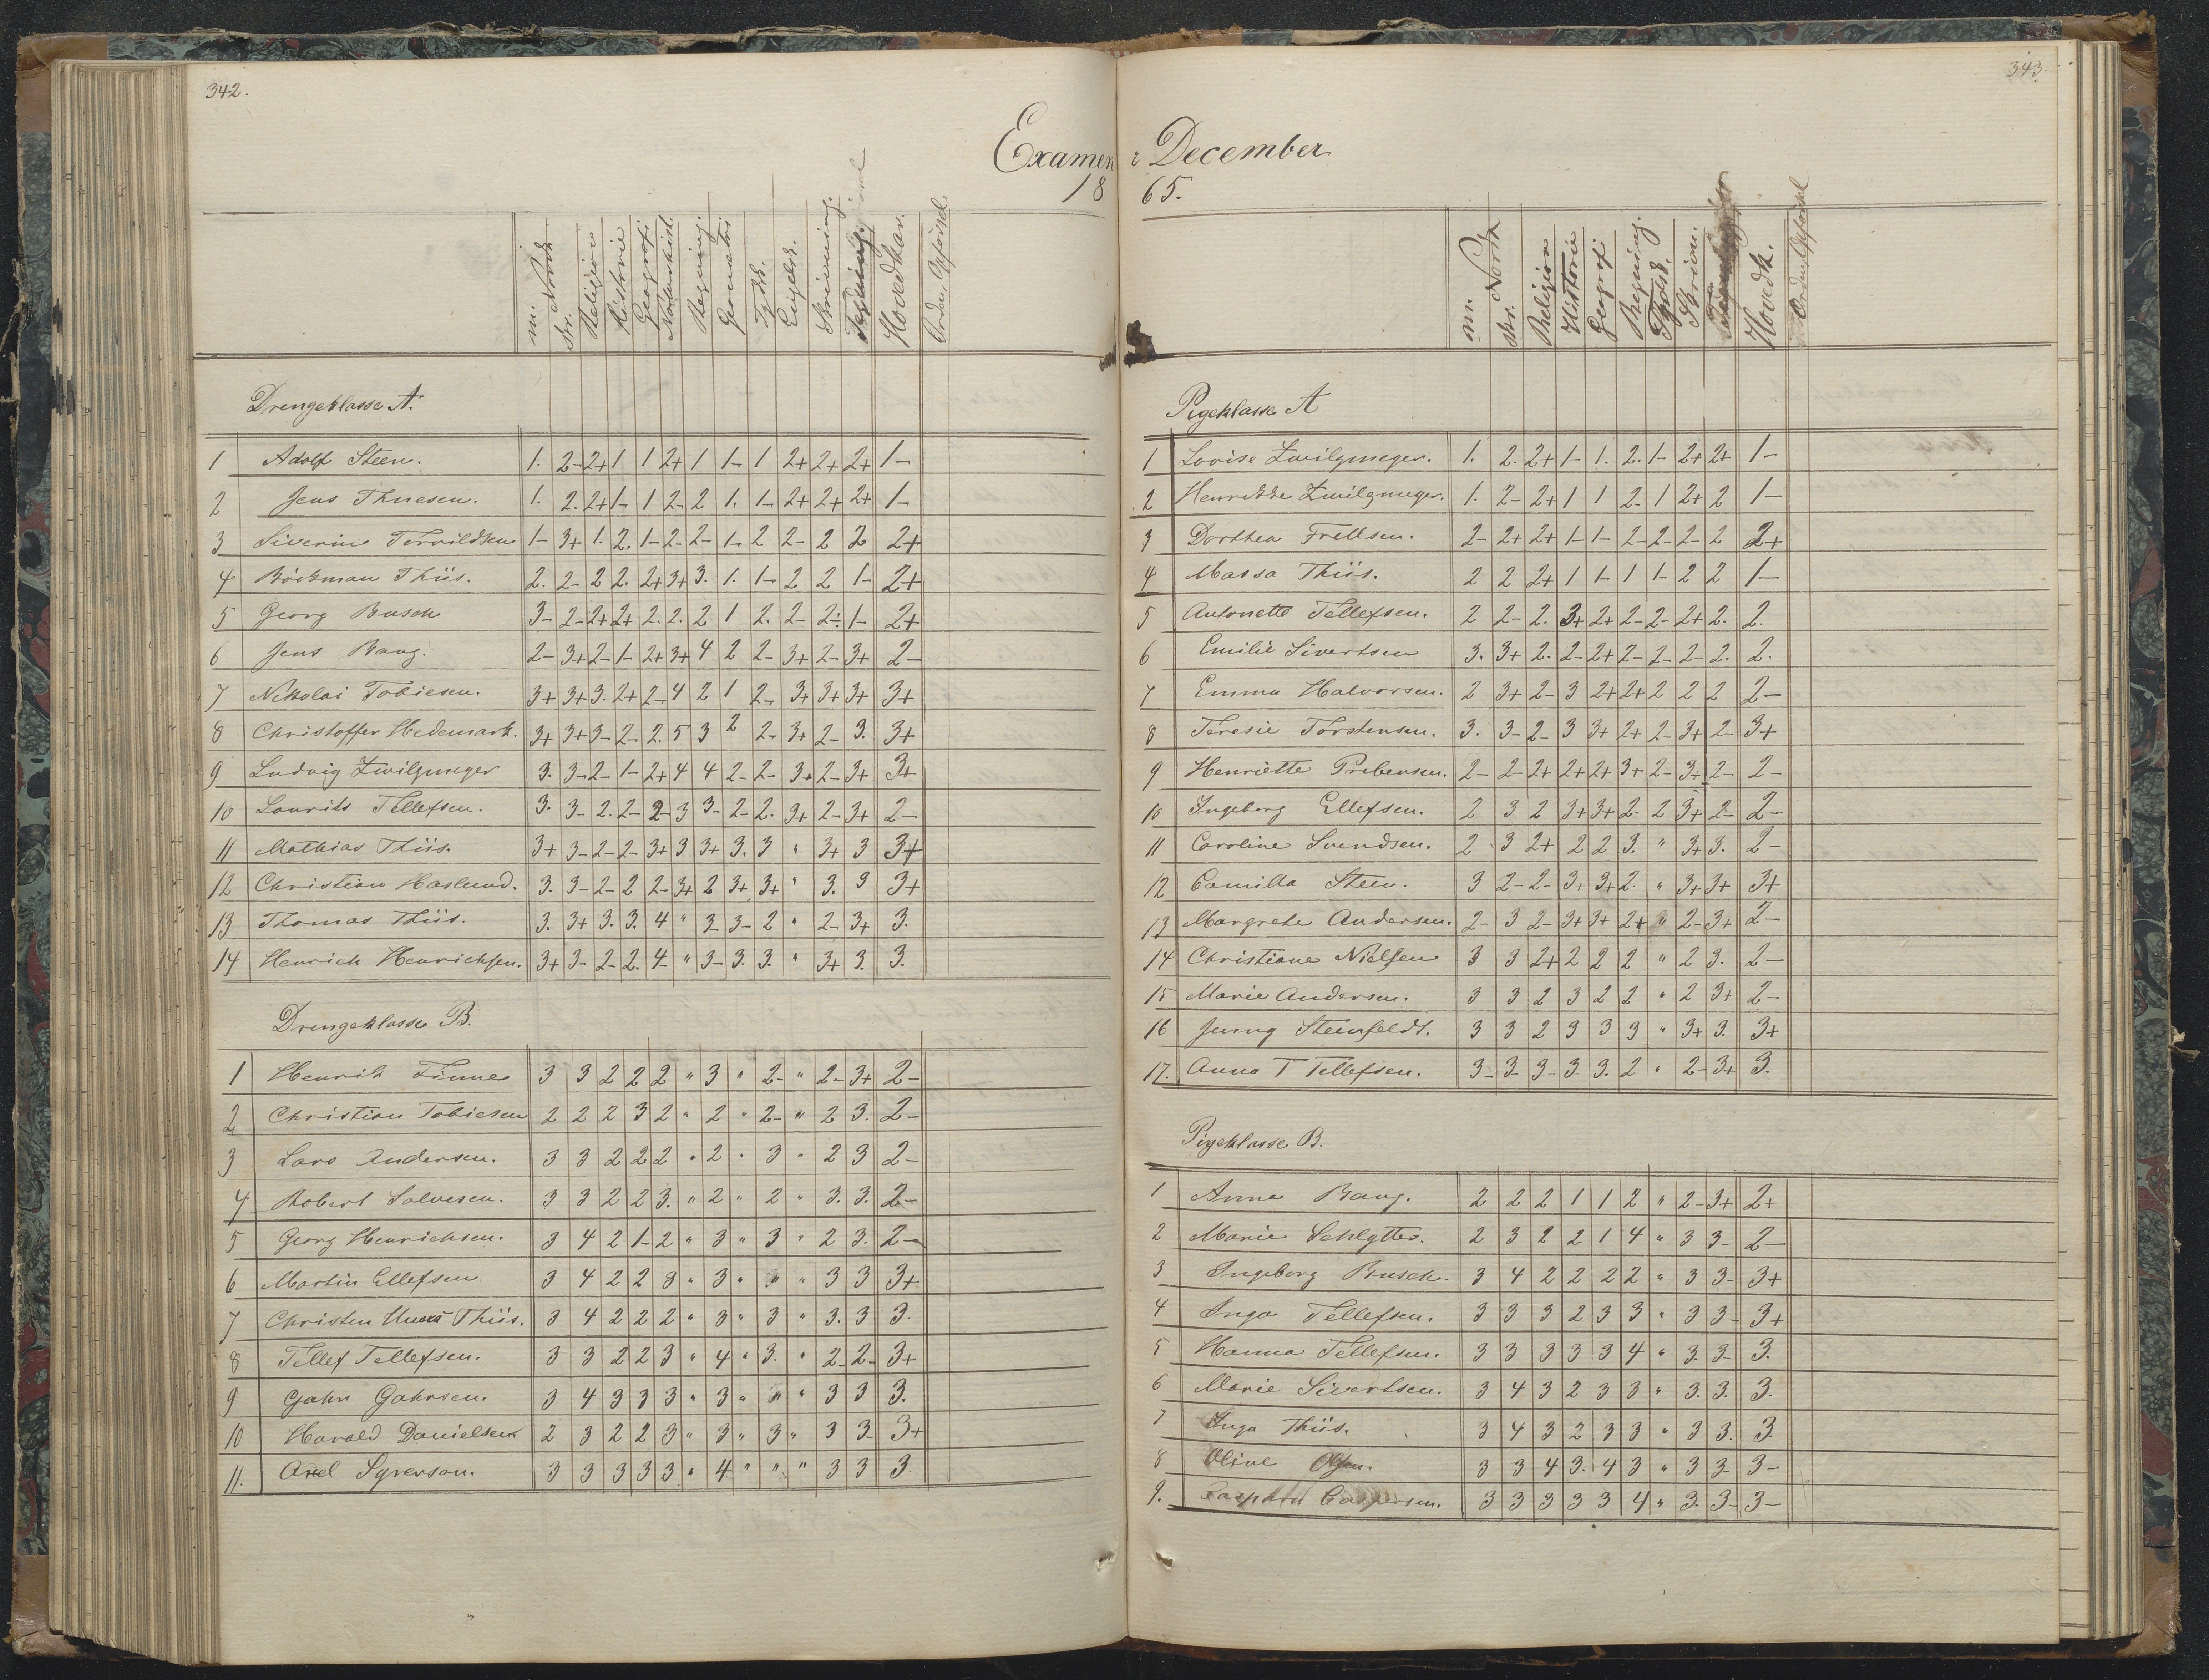 342.
Examen
18
m. Norsk
skr.
Religion
Historie
Geografi
Naturhist.
Regning
Geometri
Tydsk.
Engelsk.
Skrivning.
Tegning.
Hovedkar.
Orden, Opførsel
Drengeklasse A.
1 Adolf Steen. 1. 2- 2+ 1 1 2+ 1 1- 1 2+ 2+ 2+ 1-
2 Jens Thuesen. 1. 2. 2+ 1- 1 2- 2 1. 1- 2+ 2+ 2+ 1-
3 Siverine Torvildsen 1- 3+ 1. 2. 1- 2- 2- 1- 2 2- 2 2 2+
4 Böckman Thiis. 2. 2- 2 2. 2+ 3+ 3. 1. 1- 2 2 1- 2+
5 Georg Busch 3- 2- 2+ 2+ 2. 2. 2 1 2. 2- 2- 1- 2+
6 Jens Bang. 2- 3+ 2- 1- 2+ 3+ 4 2 2- 3+ 2- 3+ 2-
7 Nikolai Tobiesen. 3+ 3+ 3. 2+ 2- 4 2 1 2- 3+ 3+ 3+ 3+
8 Christoffer Hedemark. 3+ 3+ 3- 2- 2. 5 3 2 2- 3+ 2- 3. 3+
9 Ludvig Zwilgmeyer 3. 3- 2- 1- 2+ 4 4 2- 2- 3+ 2- 3+ 3+
10 Lourits Tellefsen. 3. 3- 2. 2- 2- 3 3- 2- 2. 3+ 2- 3+ 2-
11 Mathias Thiis. 3+ 3- 2- 2- 3+ 3 3+ 3. 3 " 3+ 3 3+
12 Christian Haslund. 3. 3- 2- 2 2- 3+ 2 3+ 3+ " 3. 3 3+
13 Thomas Thiis. 3. 3+ 3. 3. 4 " 3 3- 2 " 2- 3+ 3.
14 Henrich Henrichsen. 3+ 3- 2- 2. 4- " 3- 3. 3. " 3+ 3. 3.
Drengeklasse B.
1 Henrik Finne 3 3 2 2 2 " 3 " 2- " 2- 3+ 2-
2 Christian Tobiesen 2 2 2 3 2 " 2 " 2- " 2 3. 2-
3 Lars Andersen. 3 3 2 2 2 " 2 " 3 " 2 3 2-
4 Robert Salvesen. 3 3 2 2 3. " 2 " 2 " 3. 3. 2-
5 Georg Henrichsen. 3 4 2 1- 2 " 3 " 3 " 2 3. 2-
6 Martin Ellefsen 3 4 2 2 3 " 3 " " " 3 3 3+
7 Christen Thiis. 3 4 2 2 2 " 3 " 3 " 3. 3 3.
8 Tellef Tellefsen. 3 3 2 2 3 " 4 " 3. " 2- 2- 3+
9 Gahr Gahrsen. 3 4 3 3 3 " 3 " " " 3 3 3.
10 Harald Danielsen 2 3 2 2 3 " 3 " 3 " 3 3 3+
11. Axel Syverson. 3 3 3 3 3 " 4 " " " 3 3 3.
343.
i December
65.
m. Norsk
skr.
Religion
Historie
Geografi
Regning.
Tydsk.
Skrivn.
Hovedk.
Orden, Opførsel
Pigeklasse A
1 Lovise Zwilgmeyer. 1. 2. 2+ 1- 1. 2. 1- 2+ 2+ 1-
2 Henrikke Zwilgmeyer. 1. 2- 2+ 1 1 2- 1 2+ 2 1-
3 Dorthea Frellsen. 2- 2+ 2+ 1- 1- 2- 2- 2- 2 2+
4 Massa Thiis. 2 2 2+ 1 1- 1 1- 2 2 1-
5 Antonette Tellefsen. 2 2- 2. 3+ 2+ 2- 2- 2+ 2. 2.
6 Emilie Sivertsen 3. 3+ 2. 2- 2+ 2- 2- 2- 2. 2.
7 Emma Halvorsen. 2 3+ 2- 3 2+ 2+ 2 2 2 2-
8 Teresie Torstensen. 3. 3- 2- 3 3+ 2+ 2- 3+ 2- 3+
9 Henriette Prebensen. 2- 2- 2+ 2+ 2+ 3+ 2- 3+ 2- 2-
10 Ingeborg Ellefsen. 2 3 2 3+ 3+ 2- 2 3+ 2- 2-
11 Caroline Svendsen. 2 3 2+ 2 2 3. " 3+ 3. 2-
12 Camilla Steen. 3 2- 2- 3+ 3+ 2. " 3+ 3+ 3+
13 Margrete Andersen. 2- 3 2- 3+ 3+ 2+ " 2- 3+ 2-
14 Christiane Nielsen 3 3 2+ 2 2 2 " 2 3. 2-
15 Marie Andersen. 3 3 2 3 2 2 " 2 3+ 2-
16 Jenny Steinfeldt. 3 3 2 3 3 3 " 3+ 3. 3+
17. Anna T Tellefsen. 3- 3- 3- 3- 3. 2 " 2- 3+ 3.
Pigeklasse B.
1 Anna Bang. 2 2 2 1 1 2 " 2- 3+ 2+
2 Marie Schlytter. 2 3 2 2 1 4 " 3 3- 2-
3 Ingeborg Busch. 3 4 2 2 2 2 " 3 3- 3+
4 Inga Tellefsen. 3 3 3 2 3 3 " 3 3- 3+
5 Hanna Tellefsen. 3 3 3 3 3 4 " 3. 3- 3.
6 Marie Sivertsen. 3 4 3 2 3 3 " 3. 3. 3.
7 Inga Thiis. 3 4 3 2 3 3 " 3 3. 3
8 Oline Olsen. 3 3 4 3. 4 3 " 3 3- 3-
9. Caspara Caspersen. 3 3 3 3 3 4 " 3. 3- 3-